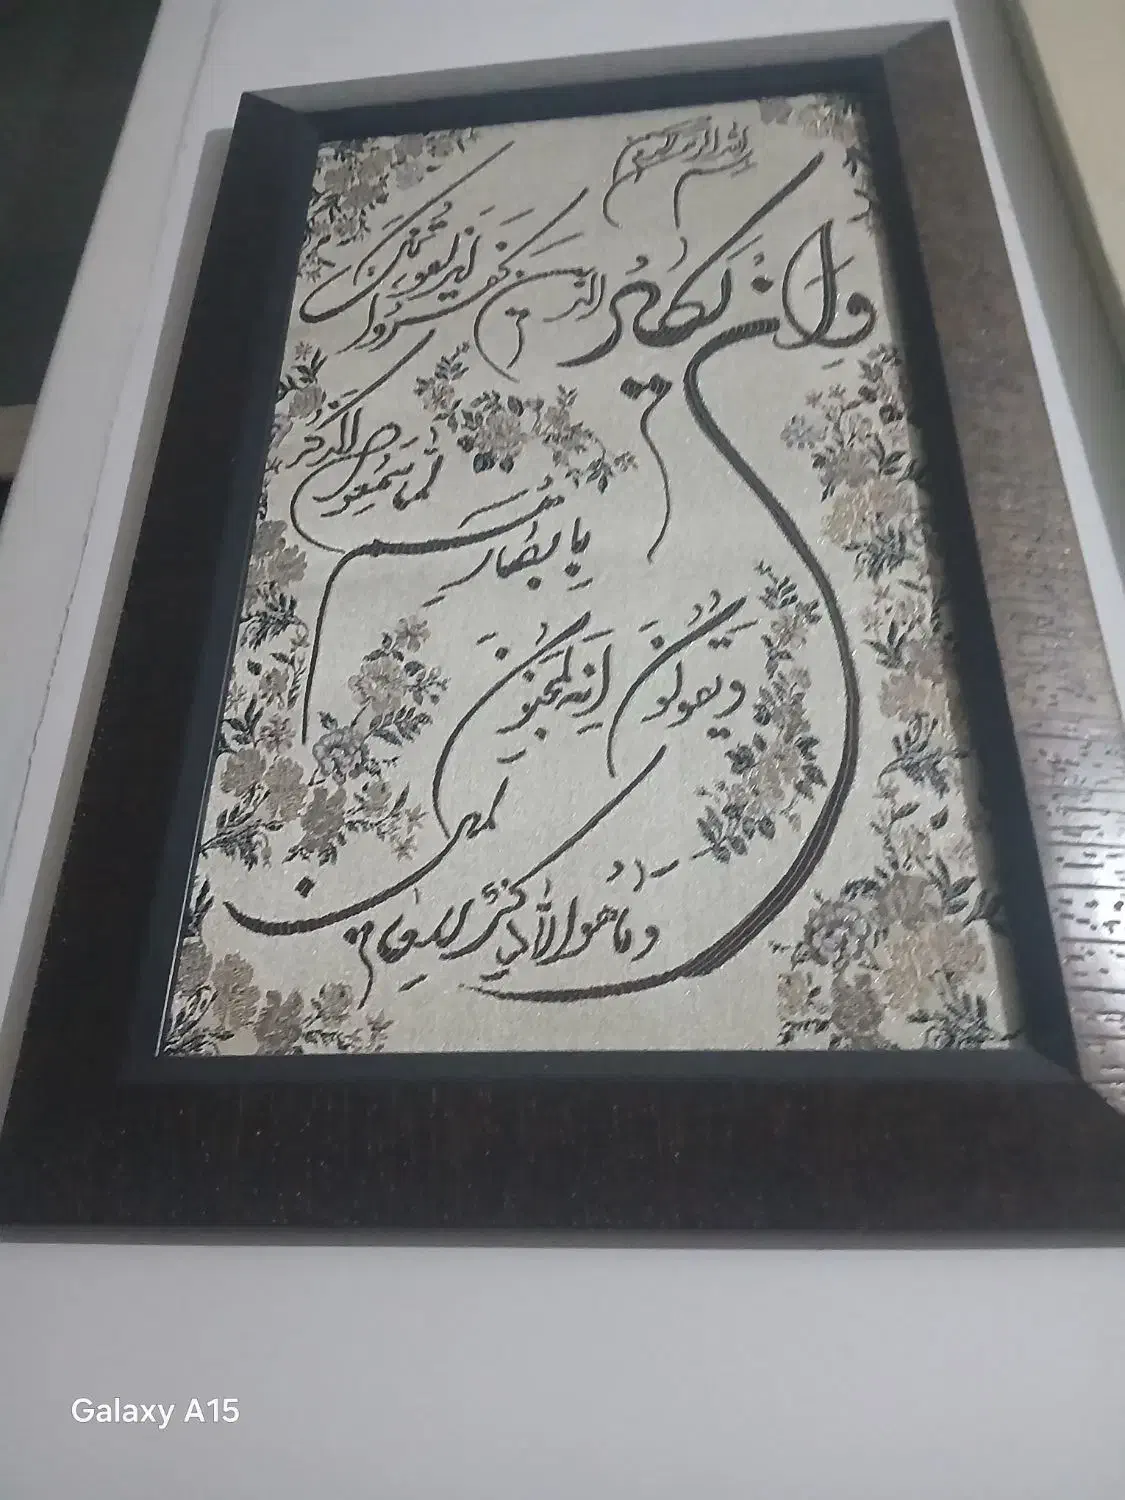 بسم الله الرحمن الرحیم
وَاِن یَکَادُ الَّذینَ کَفَرُوا لَیُزلِقُونَکَ
بِاَبصَارِهِم لَمَّا سَمِعُوا الذِّکرَ
وَیَقُولُونَ اِنَّهُ لَمَجنُونٌ
وَمَا هُوَ اِلَّا ذِکرٌ لِلعَالَمینَ
Galaxy A15